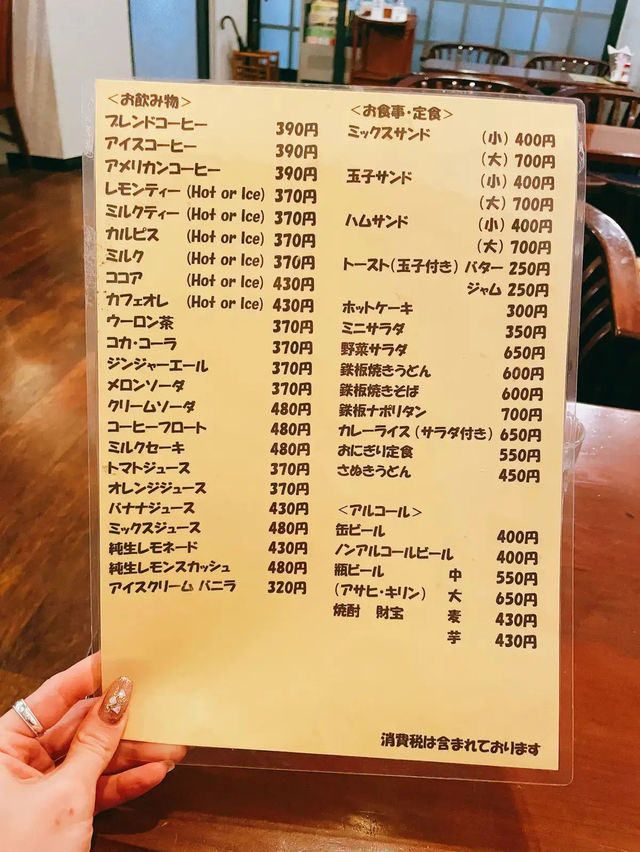 ＜お飲み物＞
ブレンドコーヒー 390円
アイスコーヒー 390円
アメリカンコーヒー 390円
レモンティー (Hot or Ice) 370円
ミルクティー (Hot or Ice) 370円
カルピス (Hot or Ice) 370円
ミルク (Hot or Ice) 370円
ココア (Hot or Ice) 430円
カフェオレ (Hot or Ice) 430円
ウーロン茶 370円
コカ・コーラ 370円
ジンジャーエール 370円
メロンソーダ 370円
クリームソーダ 480円
コーヒーフロート 480円
ミルクセーキ 480円
トマトジュース 370円
オレンジジュース 370円
バナナジュース 430円
ミックスジュース 480円
純生レモネード 430円
純生レモンスカッシュ 480円
アイスクリーム バニラ 320円
＜お食事・定食＞
ミックスサンド (小) 400円
(大) 700円
玉子サンド (小) 400円
(大) 700円
ハムサンド (小) 400円
(大) 700円
トースト(玉子付き) バター 250円
ジャム 250円
ホットケーキ 300円
ミニサラダ 350円
野菜サラダ 650円
鉄板焼きうどん 600円
鉄板焼きそば 600円
鉄板ナポリタン 700円
カレーライス (サラダ付き) 650円
おにぎり定食 550円
さぬきうどん 450円
＜アルコール＞
缶ビール 400円
ノンアルコールビール 400円
瓶ビール 中 550円
(アサヒ・キリン) 大 650円
焼酎 財宝 麦 430円
芋 430円
消費税は含まれております